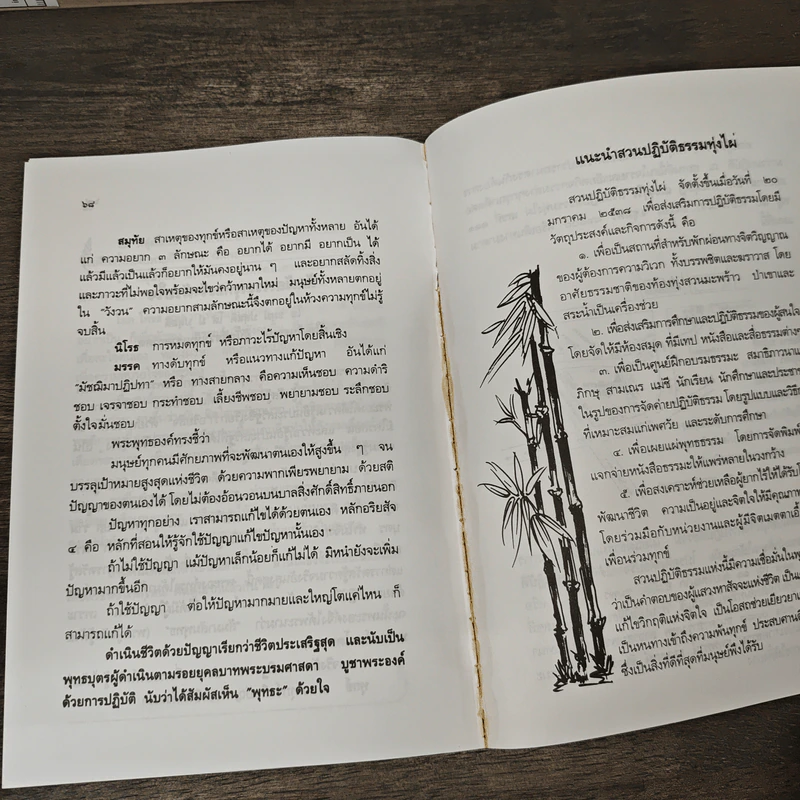 ๖๘
สมุทัย สาเหตุของทุกข์หรือสาเหตุของปัญหาทั้งหลาย อันได้
แก่ ความอยาก ๓ ลักษณะ คือ อยากได้ อยากมี อยากเป็น ได้
แล้วมีแล้วเป็นแล้วก็อยากให้มันคงอยู่นาน ๆ และอยากสลัดทิ้งสิ่ง
และภาวะที่ไม่พอใจพร้อมจะไขว่คว้าหามาใหม่ มนุษย์ทั้งหลายตกอยู่
ใน "วังวน" ความอยากสามลักษณะนี้จึงตกอยู่ในห้วงความทุกข์ไม่รู้
จบสิ้น
นิโรธ การหมดทุกข์ หรือภาวะไร้ปัญหาโดยสิ้นเชิง
มรรค ทางดับทุกข์ หรือแนวทางแก้ปัญหา อันได้แก่
"มัชฌิมาปฏิปทา" หรือ ทางสายกลาง คือความเห็นชอบ ความดำริ
ชอบ เจรจาชอบ กระทำชอบ เลี้ยงชีพชอบ พยายามชอบ ระลึกชอบ
ตั้งใจมั่นชอบ
พระพุทธองค์ทรงชี้ว่า
มนุษย์ทุกคนมีศักยภาพที่จะพัฒนาตนเองให้สูงขึ้น ๆ จน
บรรลุเป้าหมายสูงสุดแห่งชีวิต ด้วยความพากเพียรพยายาม ด้วยสติ
ปัญญาของตนเองได้ โดยไม่ต้องอ้อนวอนบนบาลสิ่งศักดิ์สิทธิ์ภายนอก
ปัญหาทุกอย่าง เราสามารถแก้ไขได้ด้วยตนเอง หลักอริยสัจ
๔ คือ หลักที่สอนให้รู้จักใช้ปัญญาแก้ไขปัญหานั้นเอง
ถ้าไม่ใช้ปัญญา แม้ปัญหาเล็กน้อยก็แก้ไม่ได้ มิหนำยังจะเพิ่ม
ปัญหามากขึ้นอีก
ถ้าใช้ปัญญา ต่อให้ปัญหามากมายและใหญ่โตแค่ไหน ก็
สามารถแก้ได้
ดำเนินชีวิตด้วยปัญญาเรียกว่าชีวิตประเสริฐสุด และนับเป็น
พุทธบุตรผู้ดำเนินตามรอยยุคลบาทพระบรมศาสดา บูชาพระองค์
ด้วยการปฏิบัติ นับว่าได้สัมผัสเห็น "พุทธะ" ด้วยใจ
แนะนำสวนปฏิบัติธรรมทุ่งไผ่
สวนปฏิบัติธรรมทุ่งไผ่ จัดตั้งขึ้นเมื่อวันที่ ๒๐
มกราคม ๒๕๓๘ เพื่อส่งเสริมการปฏิบัติธรรมโดยมี
วัตถุประสงค์และกิจการดังนี้ คือ
๑. เพื่อเป็นสถานที่สำหรับพักผ่อนทางจิตวิญญาณ
ของผู้ต้องการความวิเวก ทั้งบรรพชิตและฆราวาส โดย
อาศัยธรรมชาติของท้องทุ่งสวนมะพร้าว ป่าเขาและ
สระน้ำเป็นเครื่องช่วย
๒. เพื่อส่งเสริมการศึกษาและปฏิบัติธรรมของผู้สนใจ
โดยจัดให้มีห้องสมุด ที่มีเทป หนังสือและสื่อธรรมต่างๆ
๓. เพื่อเป็นศูนย์ฝึกอบรมธรรมะ สมาธิภาวนาแก่
ภิกษุ สามเณร แม่ชี นักเรียน นักศึกษาและประชาชน
ในรูปของการจัดค่ายปฏิบัติธรรม โดยรูปแบบและวิธี
ที่เหมาะสมแก่เพศวัย และระดับการศึกษา
๔. เพื่อเผยแผ่พุทธธรรม โดยการจัดพิมพ์
แจกจ่ายหนังสือธรรมะให้แพร่หลายในวงกว้าง
๕. เพื่อสงเคราะห์ช่วยเหลือผู้ยากไร้ให้ได้รับ
พัฒนาชีวิต ความเป็นอยู่และจิตใจให้มีคุณภาพ
โดยร่วมมือกับหน่วยงานและผู้มีจิตเมตตาเอื้อ
เพื่อนร่วมทุกข์
สวนปฏิบัติธรรมแห่งนี้มีความเชื่อมั่นใน
ว่าเป็นคำตอบของผู้แสวงหาสัจจะแห่งชีวิต
แก้ไขวิกฤติแห่งจิตใจ เป็นโอสถช่วยเยียวยา
เป็นหนทางเข้าถึงความพ้นทุกข์ ประสบ
ซึ่งเป็นสิ่งที่ดีที่สุดที่มนุษย์พึงได้รับ